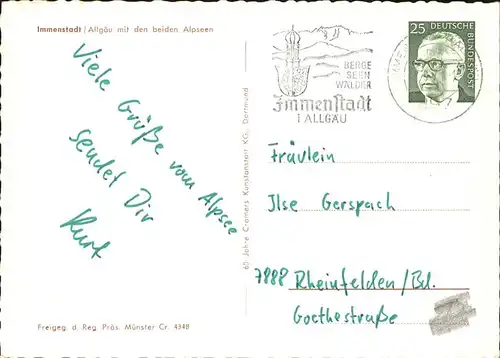 Immenstadt / Allgäu mit den beiden Alpseen
Viele Grüße vom Alpsee
sendet Dir
Kurt
Freigeg. d. Reg. Präs. Münster Cr. 4348
60 Jahre Cramers Kunstanstalt KG, Dortmund
BERGE
SEEN
WÄLDER
Immenstadt
I ALLGÄU
25
DEUTSCHE BUNDESPOST
Fräulein
Ilse Gerspach
7888 Rheinfelden/Bd.
Goethestraße